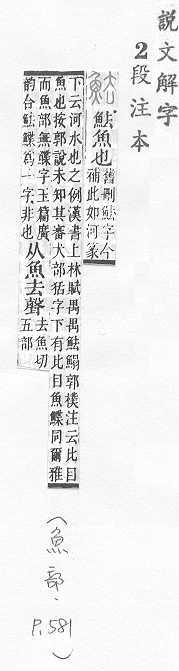 說文解字
2段注本
魼 魼魚也舊刪魼字今補此如河篆
下云河水也之例漢書上林賦禺禺魼鰨郭樸注云比目
魚也按郭說未知其審犬部狧字下有比目魚鰈同爾雅
而魚部無鰈字玉篇廣
韵合魼鰈爲一字非也从魚去聲去魚切五部
(魚部.P.581)